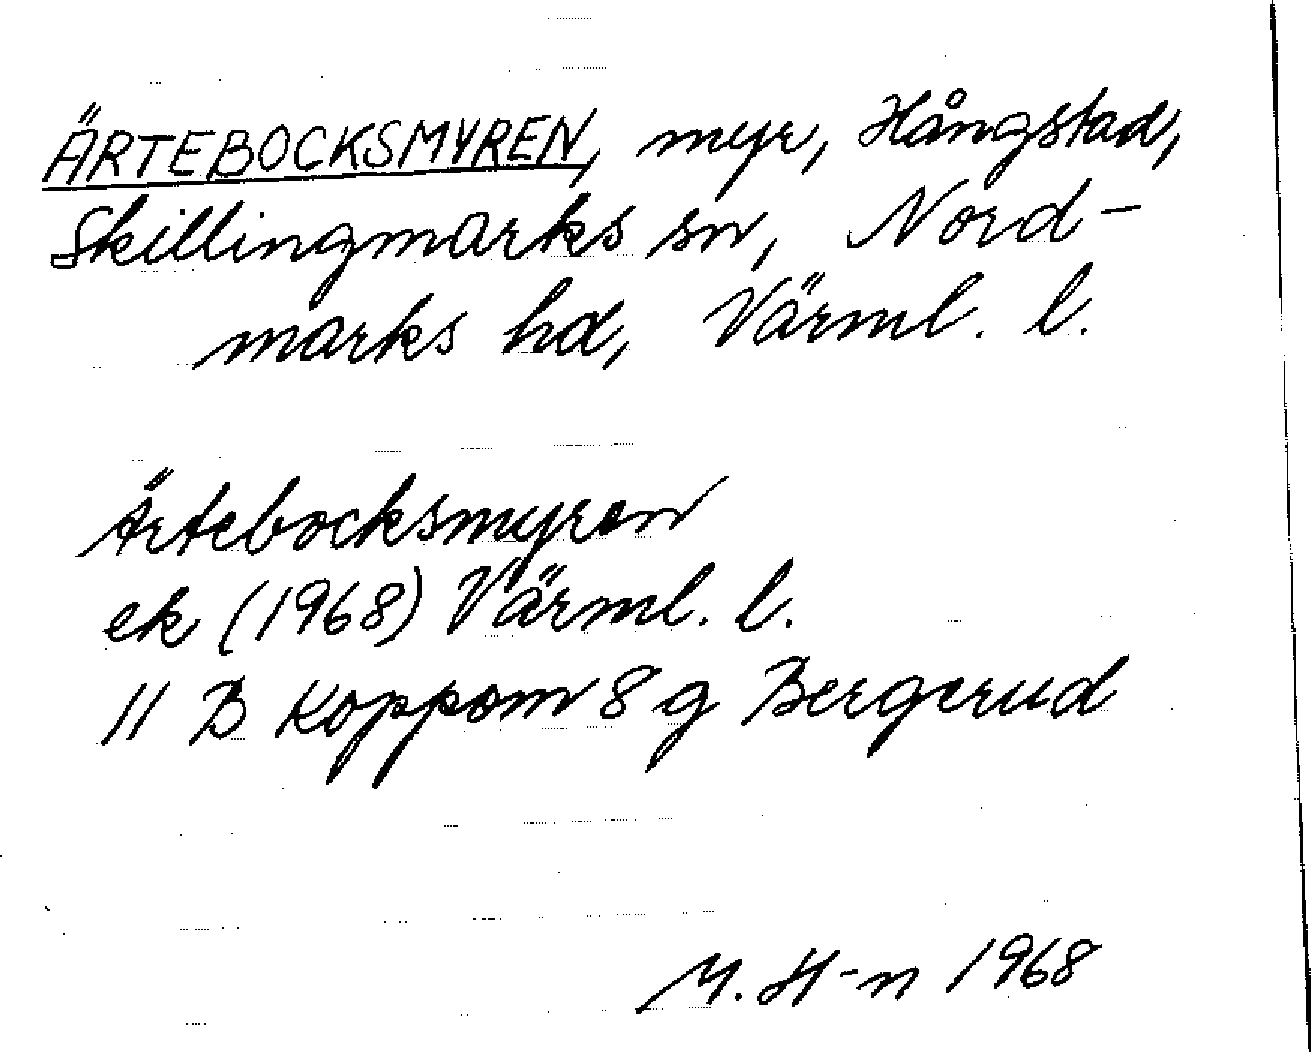 ÄRTEBOCKSMYREN, myr, Hångstad,
Skillingmarks sn, Nord-
marks hd, Värml. l.
Ärtebocksmyren
ek (1968) Värml. l.
11 B Koppom 8 g Bergerud
M. H-n 1968